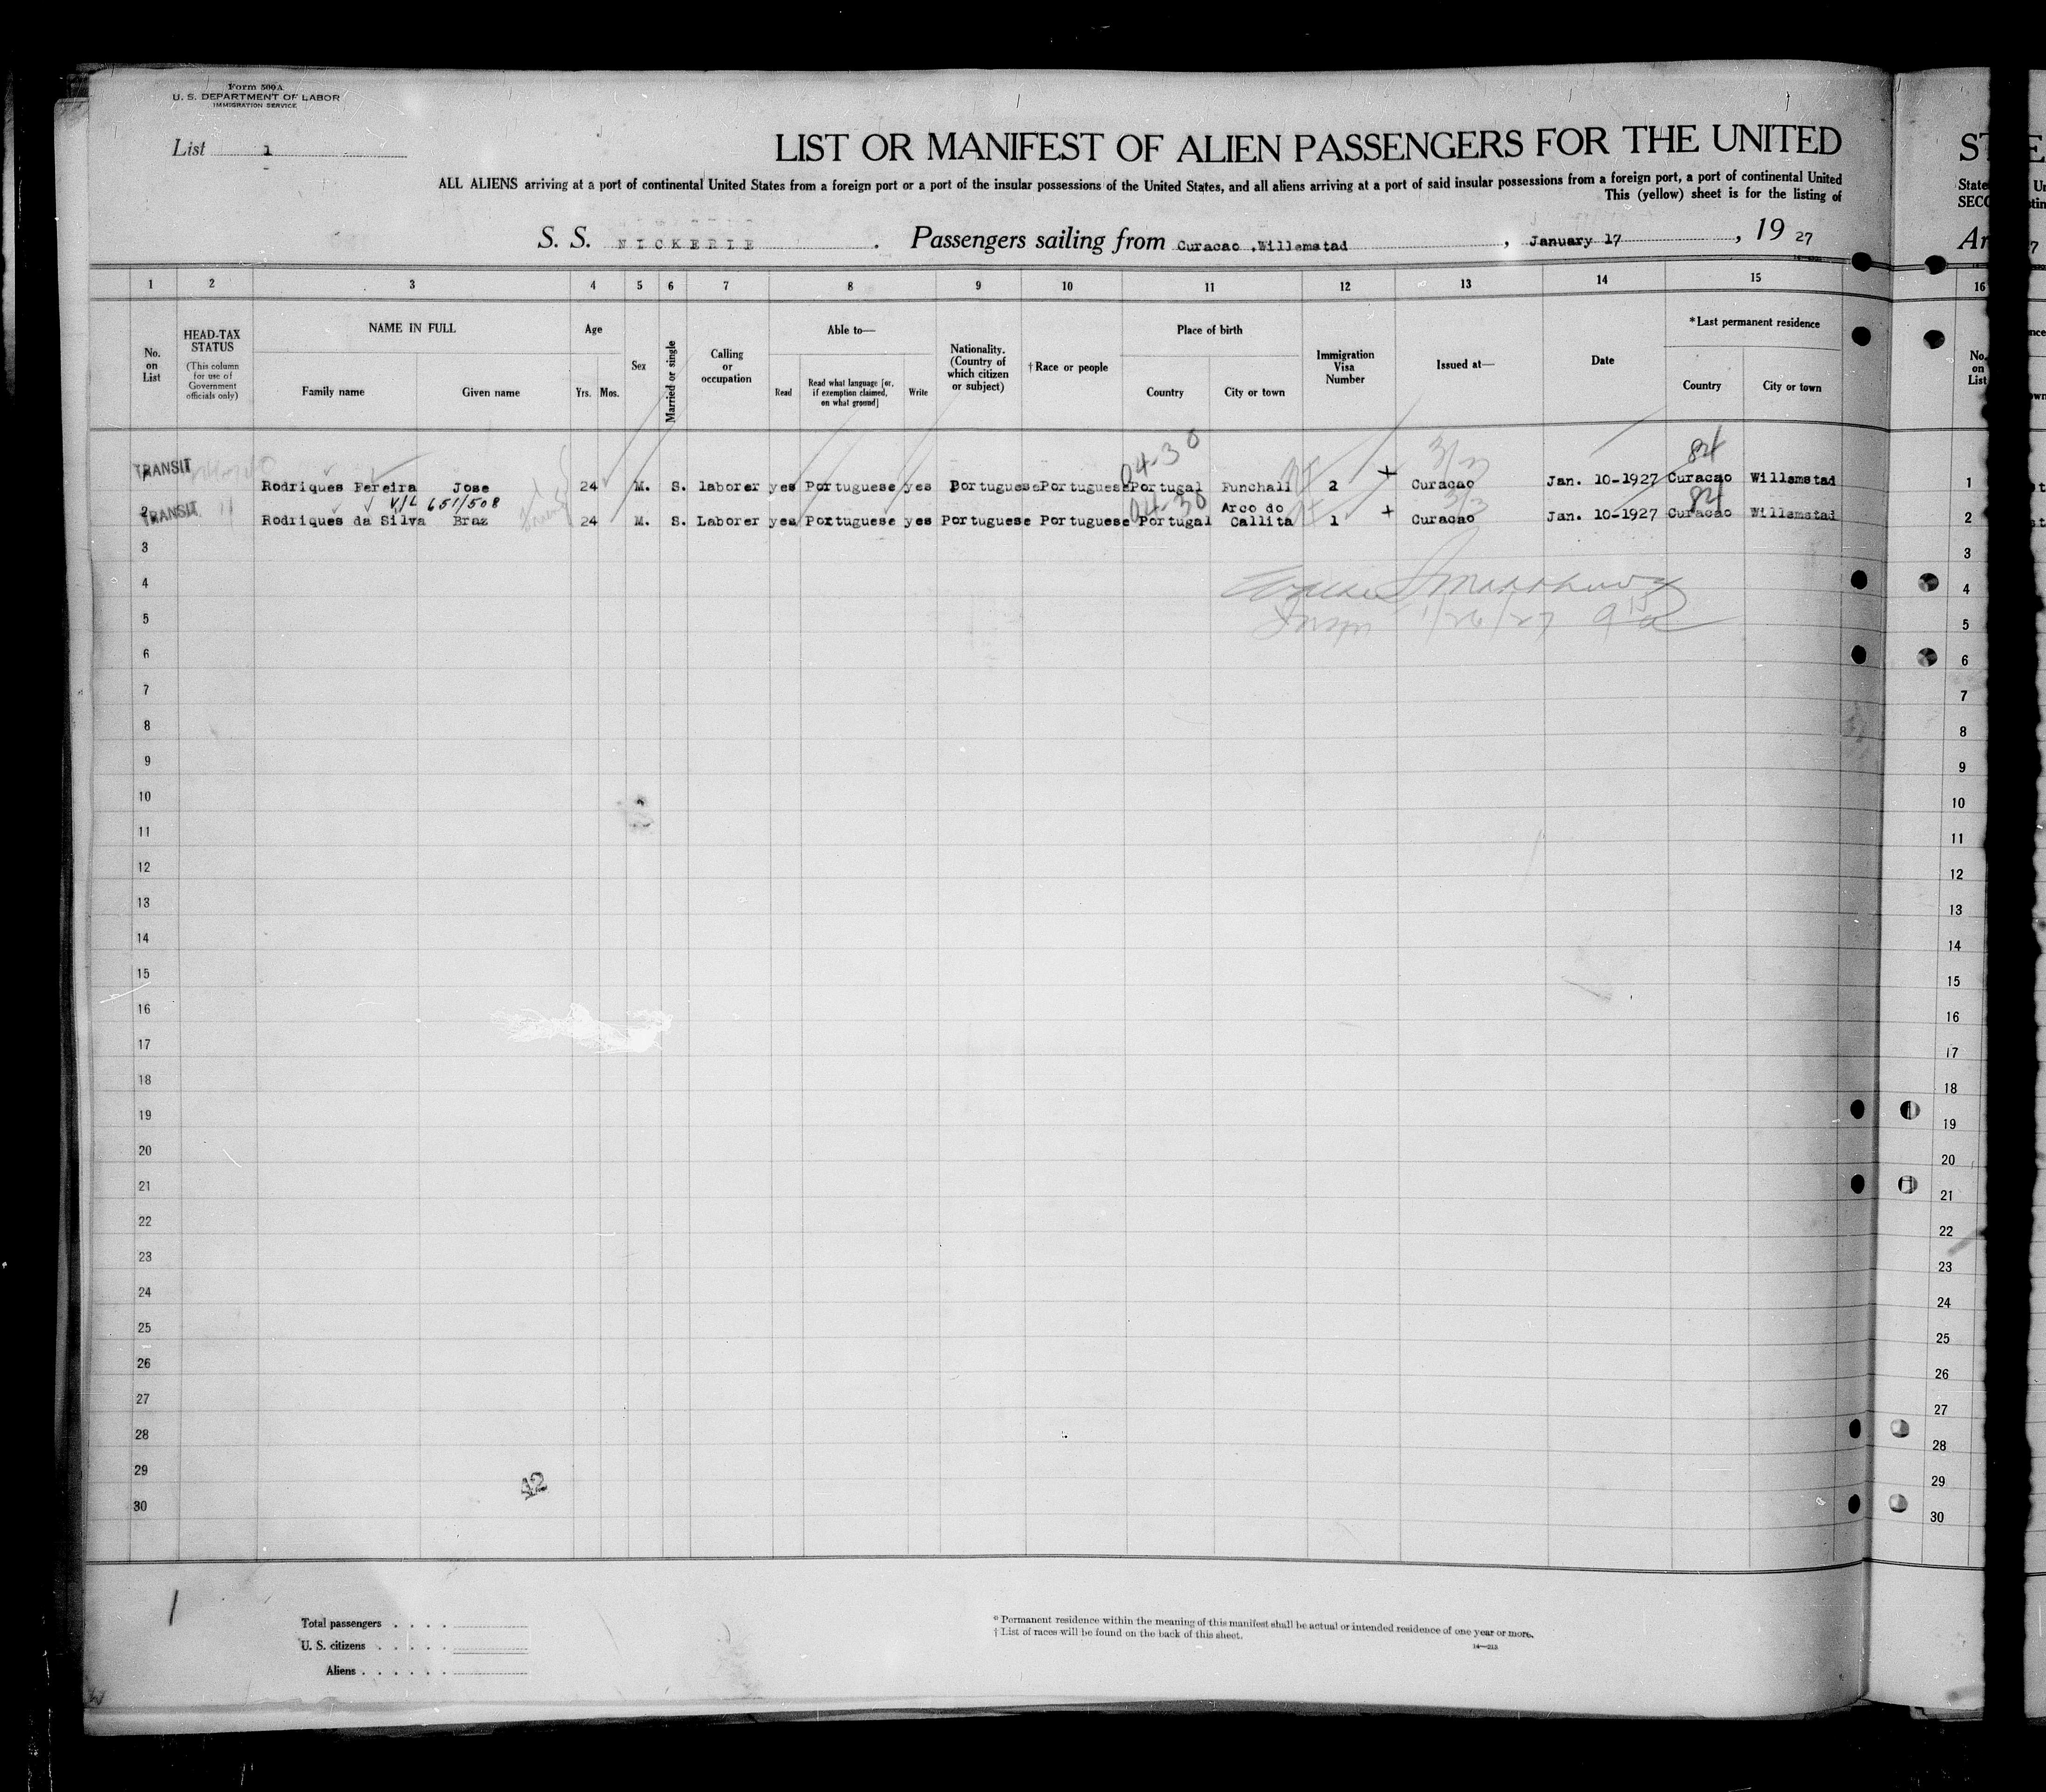 Form 500A
U. S. DEPARTMENT OF LABOR
IMMIGRATION SERVICE
List 1
LIST OR MANIFEST OF ALIEN PASSENGERS FOR THE UNITED
ALL ALIENS arriving at a port of continental United States from a foreign port or a port of the insular possessions of the United States, and all aliens arriving at a port of said insular possessions from a foreign port, a port of continental United
This (yellow) sheet is for the listing of
S. S. NICKERIE . Passengers sailing from Curacao ,Willemstad , January 17 , 19 27
1 2 3 4 5 6 7 8 9 10 11 12 13 14 15 16
No. on List
HEAD-TAX STATUS
(This column for use of Government officials only)
NAME IN FULL
Family name Given name
Age
Yrs. Mos.
Sex
Married or single
Calling or occupation
Able to—
Read
Read what language [or, if exemption claimed, on what ground]
Write
Nationality. (Country of which citizen or subject)
† Race or people
Place of birth
Country City or town
Immigration Visa Number
Issued at—
Date
* Last permanent residence
Country City or town
No. on List
04-30 84
TRANSIT
1 Rodriques Pereira Jose 24 M. S. laborer yes Portuguese yes Portuguese Portuguese Portugal Funchall 2 + Curacao Jan. 10-1927 Curacao Willemstad 1
V/L 651/508 04-30 84
TRANSIT
2 Rodriques da Silva Braz 24 M. S. Laborer yes Portuguese yes Portuguese Portuguese Portugal Arco do Callita 1 + Curacao Jan. 10-1927 Curacao Willemstad 2
3 3
4 4
5 1/26/27 5
6 6
7 7
8 8
9 9
10 10
11 11
12 12
13 13
14 14
15 15
16 16
17 17
18 18
19 19
20 20
21 21
22 22
23 23
24 24
25 25
26 26
27 27
28 28
29 29
42
30 30
Total passengers . . . .
U. S. citizens . . . . .
Aliens . . . . . .
* Permanent residence within the meaning of this manifest shall be actual or intended residence of one year or more.
† List of races will be found on the back of this sheet.
14—213